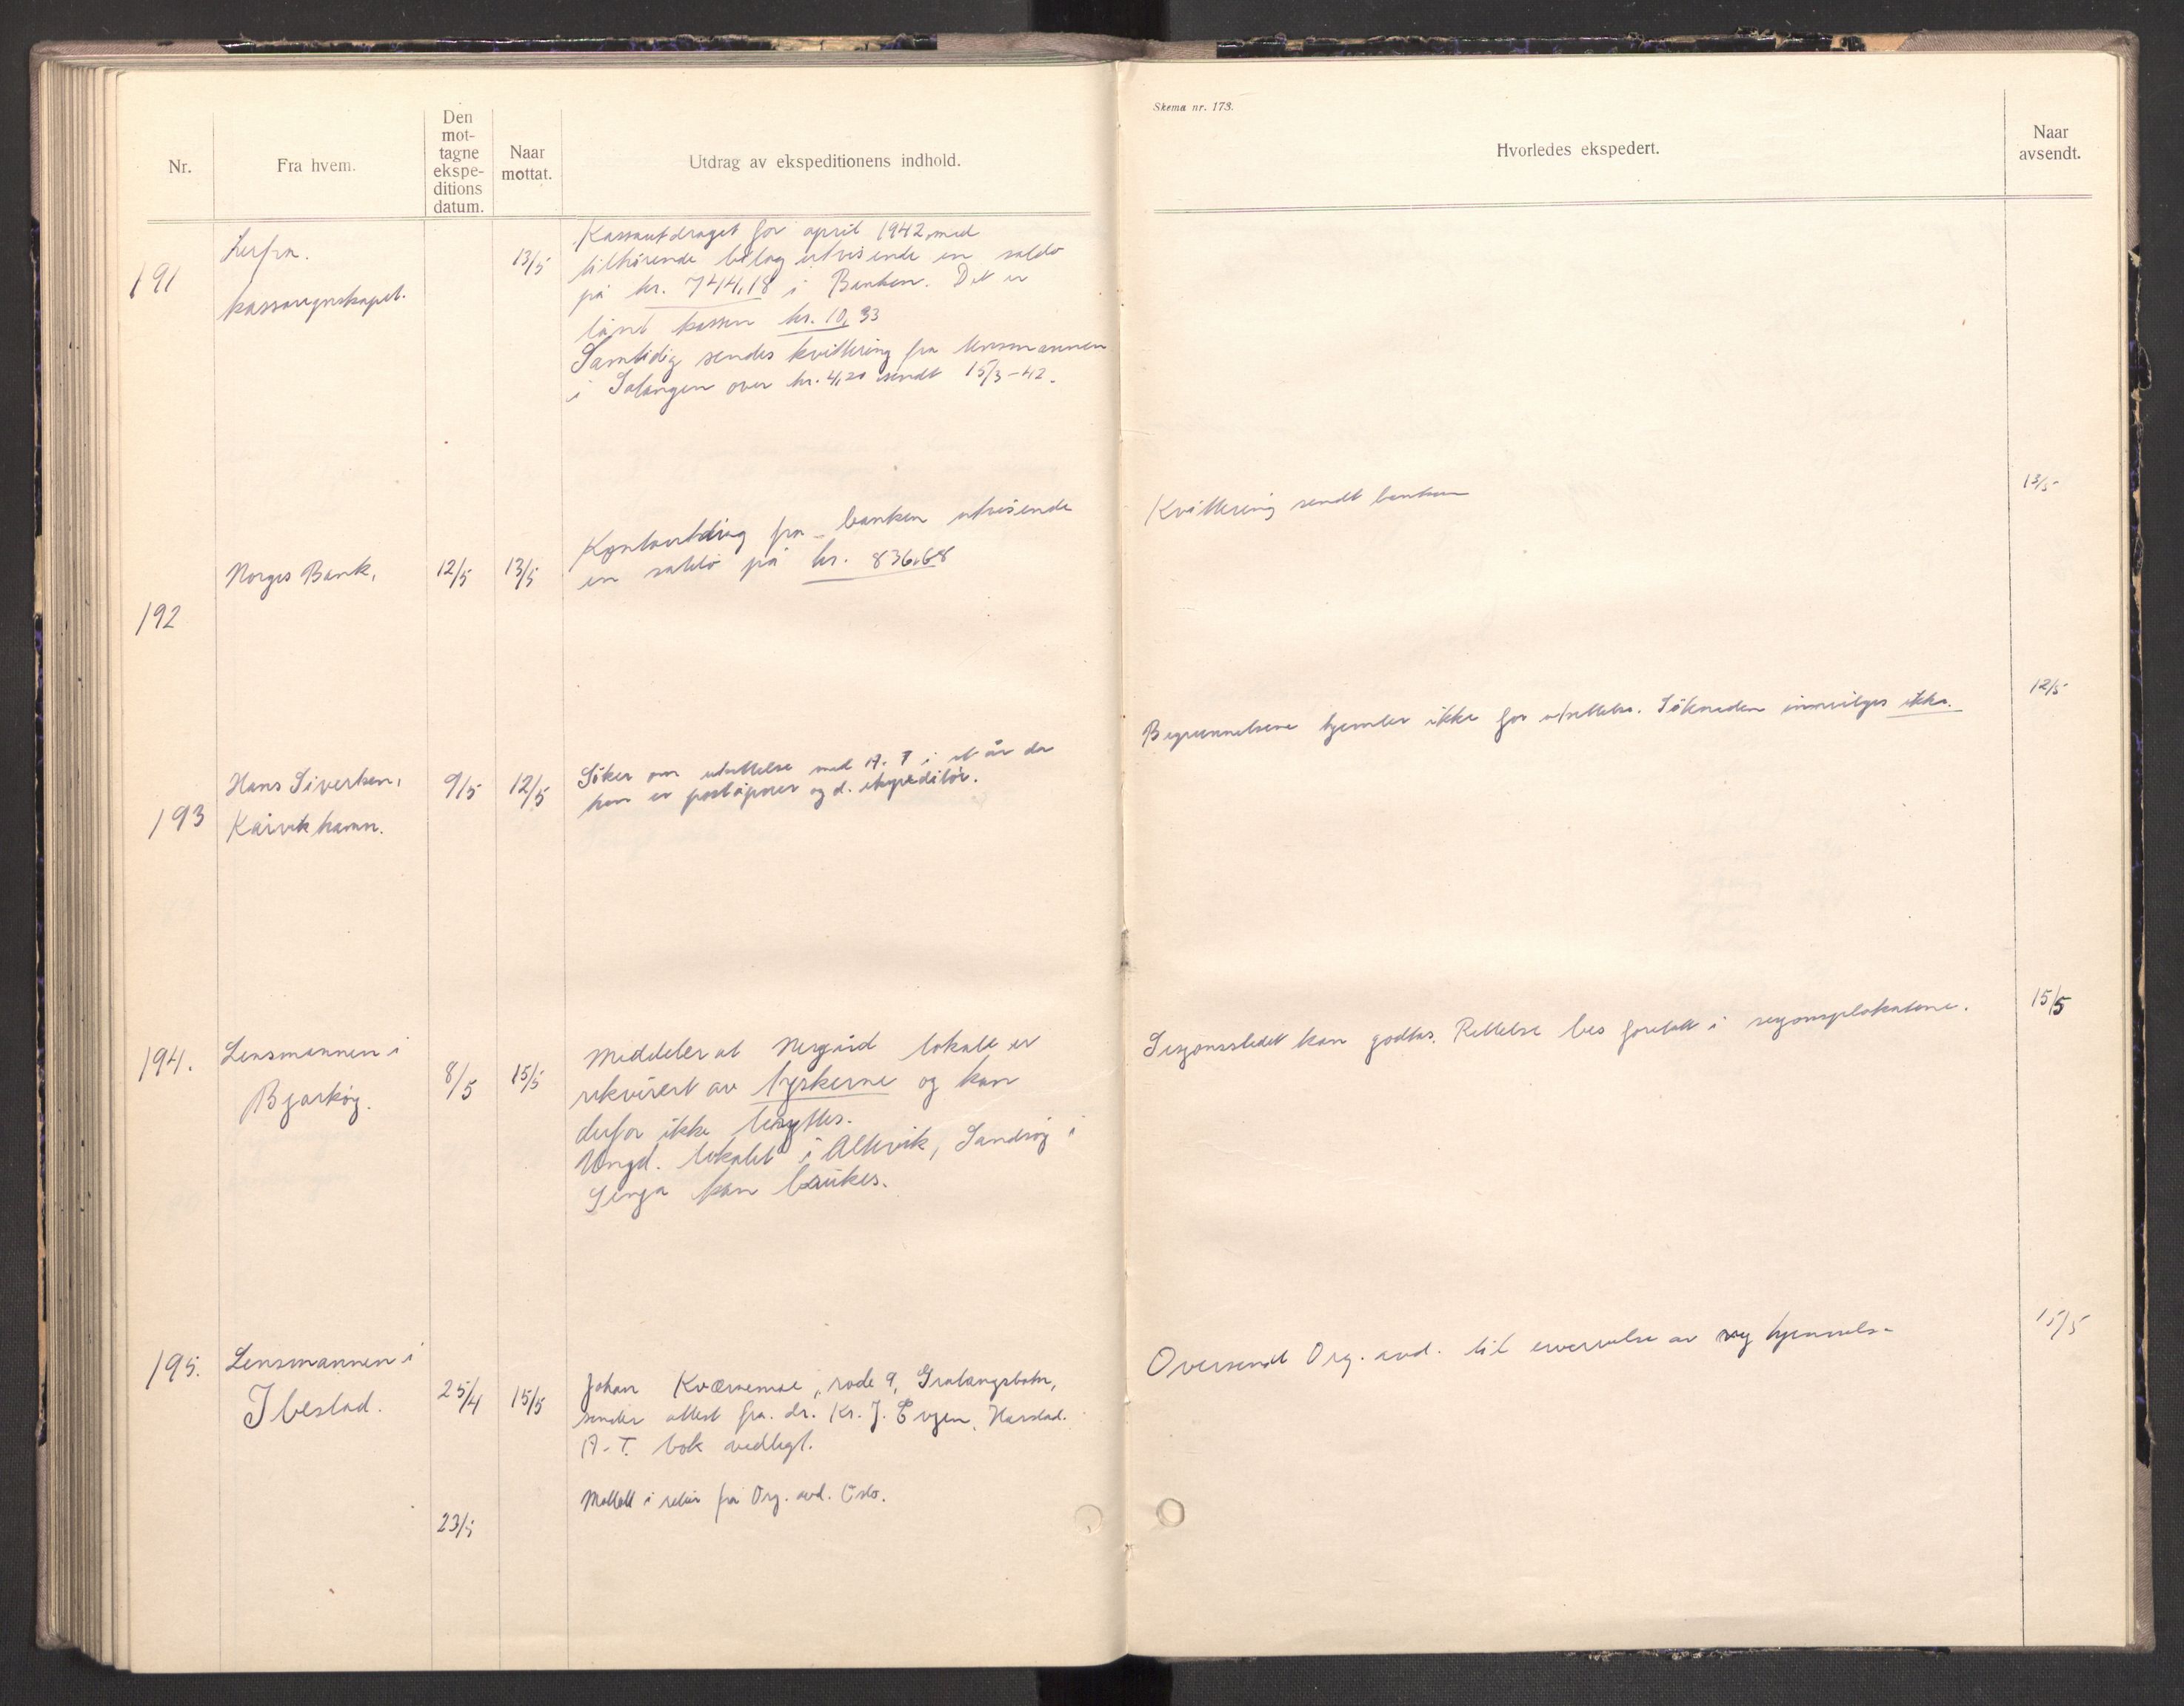 Skema nr. 173.
Nr.
Fra hvem.
Den
mot-
tagne
ekspe-
ditions
datum.
Naar
mottat.
Utdrag av ekspeditionens indhold.
Hvorledes ekspedert.
Naar
avsendt.
191
Herfra.
kassaregnskapet.
13/5
Kassautdraget for april 1942 med
tilhørende bilag utvisende en saldo
på kr. 744,18 i Banken. Det er
lånt kassen kr. 10,33
Samtidig sendes kvittering fra lensmannen
i Salangen over kr. 4,20 sendt 15/3-42.
192
Norges Bank,
12/5
13/5
Kontoutdrag fra banken utvisende
en saldo på kr. 836.68
Kvittering sendt banken
13/5
193
Hans Sivertsen,
Kårvikhamn.
9/5
12/5
Söker om utsettelse med A. T i et år da
han er poståpner og d. ekspeditör.
Begrunnelsene hjemler ikke for utsettelse. Söknaden innvilges ikke.
12/5
194.
Lensmannen i
Bjarköy.
8/5
15/5
Meddeler at Nergård lokale er
rekvirert av tyskerne og kan
derfor ikke benyttes.
Ungd. lokalet i Altevik, Sandsöy i
Senja kan brukes.
Sesjonsstedet kan godtas. Rettelse bes foretatt i sesjonsplakatene.
15/5
195.
Lensmannen i
Ibestad.
25/4
15/5
Johan Kværnemoe, rode 9, Gratangsbotn,
sender attest fra dr. Kr. J. Evjen, Harstad.
A-T. bok vedlagt.
Oversendt Org. avd. til ervervelse av ny hjemmels-
15/5
23/5
Mottatt i retur fra Org. avd. Oslo.